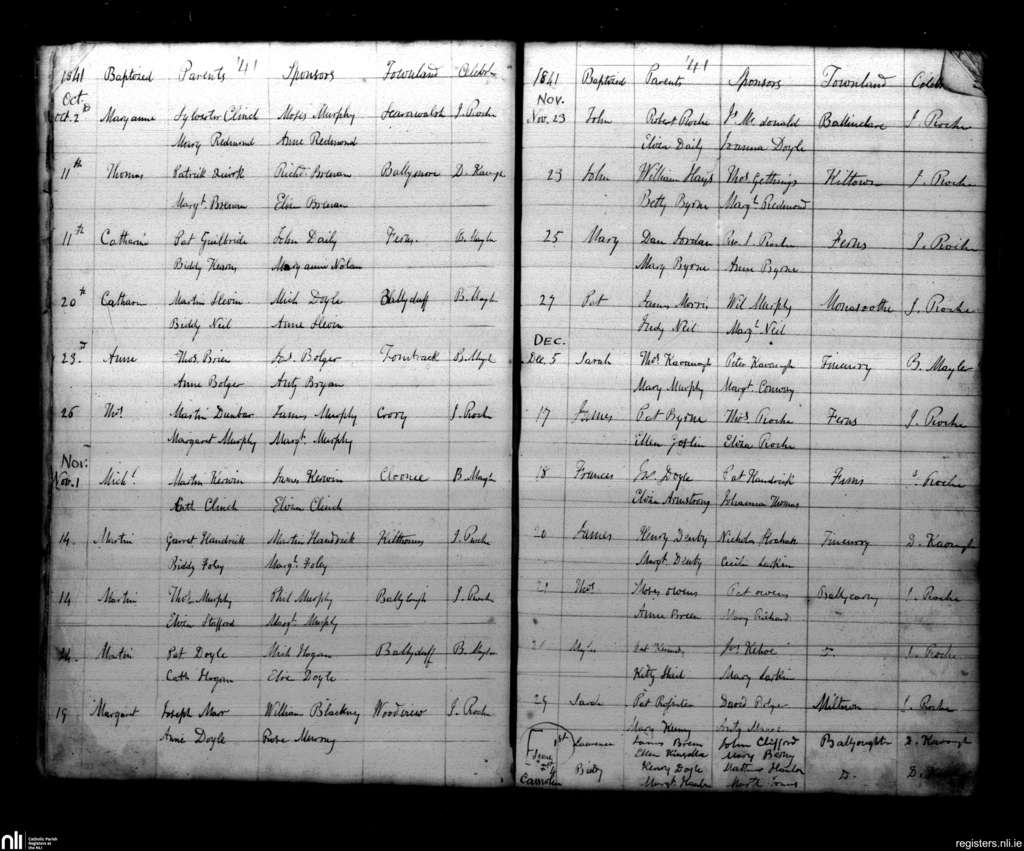 1841 Baptized Parents '41 Sponsors Townland Celebr
Oct.
Oct. 2d Maryanne Sylvester Clinch Moses Murphy Scarawalsh J. Roche
Mary Redmond Anne Redmond
11th Thomas Patrick Quirk Richd. Brenan Ballymore D. Kavagh
Margt. Brenan Eliza Brenan
11th Catharin Pat Guilbride John Daily Ferns. B. Mayler
Biddy Maryanne Nolan
20th Catharn Martin Slevin Mich Doyle Ballyduff B. Mayl
Biddy Neil Anne Slevin
23 Anne Thos. Brien Jas. Bolger Tomtrack B. Mayl
Anne Bolger Anty Bryan
26 Thos. Martin Dunbar James Murphy Coory J. Roch
Margaret Murphy Margt. Murphy
Nov:
Nov. 1 Michl. Martin Kerwin James Kerwin Cloonee B. Mayl
Cath Clinch Eliza Clinch
14. Martin Garret Handrick Martin Handrick J. Roche
Biddy Foley Margt. Foley
14 Martin Thos. Murphy Phil Murphy J. Roche
Eliza Stafford Margt. Murphy
14. Martin Pat Doyle Mich Hogan Ballyduff B. Mayler
Cath Hogan Doyle
19 Margaret Joseph William Blackney J. Roche
Anne Doyle Rose
1841 Baptized Parents '41 Sponsors Townland Celeb
Nov.
Nov. 23 John Robert Roche Js. McDonald Ballinclare J. Roche
Eliza Daily Joanna Doyle
23 John William Hays Thos. Gethings Kiltown J. Roche
Betty Byrne Margt. Redmond
25 Mary Dan Jordan J. Roche Ferns J. Roche
Mary Byrne Anne Byrne
27 Pat James Morris Wil Murphy Monasoothe J. Roche
Judy Neil Margt. Neil
DEC.
Dec. 5 Sarah Thos. Kavanagh Peter Kavanagh Finnurry B. Mayler
Mary Murphy Margt. Conway
17 James Pat Byrne Thos. Roche Ferns J. Roche
Ellen Goslin Eliza Roche
18 Frances Jno. Doyle Pat Handrick Ferns J. Roche
Eliza Armstrong Johanna Thomas
20 James Henry Denby Nicholas Finnurry D. Kavanagh
Margt. Denby Cecila Larkin
21 Thos. Moses Owens Pat Owens Ballycarny J. Roche
Anne Breen Mary Richard
21 Myles Pat Jas Kehoe J. Roche
Kitty Mary Larkin
29 Sarah Pat David Bolger Miltown J. Roche
Mary Kenny
1st Lawrence James Breen John Clifford Ballyoughter D. Kavanagh
June Ellen Kinsella Mary Berry
2d Biddy Henry Doyle Matthew Hanlon D. D.
Camolin Margt.
nli Catholic Parish
Registers at
the NLI
registers.nli.ie